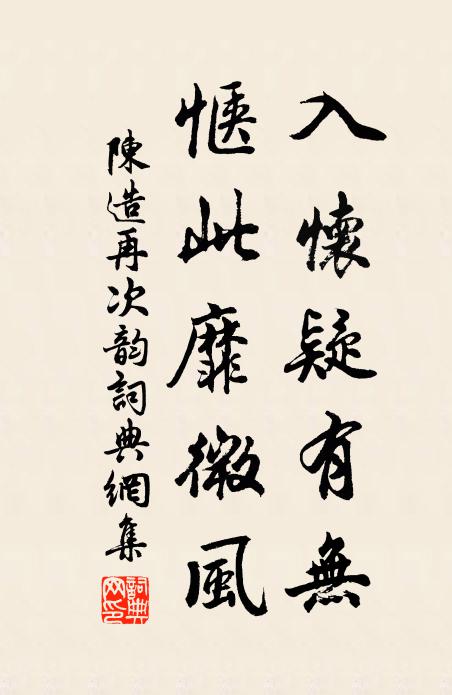 入懷疑有無
愜此靡微風
陳造再次韵詞典網集
詞典網印